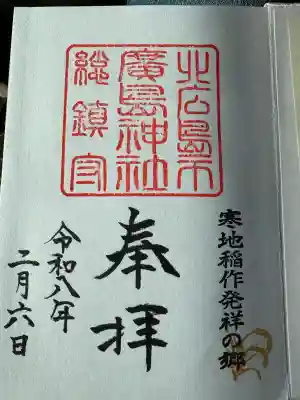 北広島市
廣島神社
総鎮守
寒地稲作発祥の郷
奉拝
令和八年
二月六日